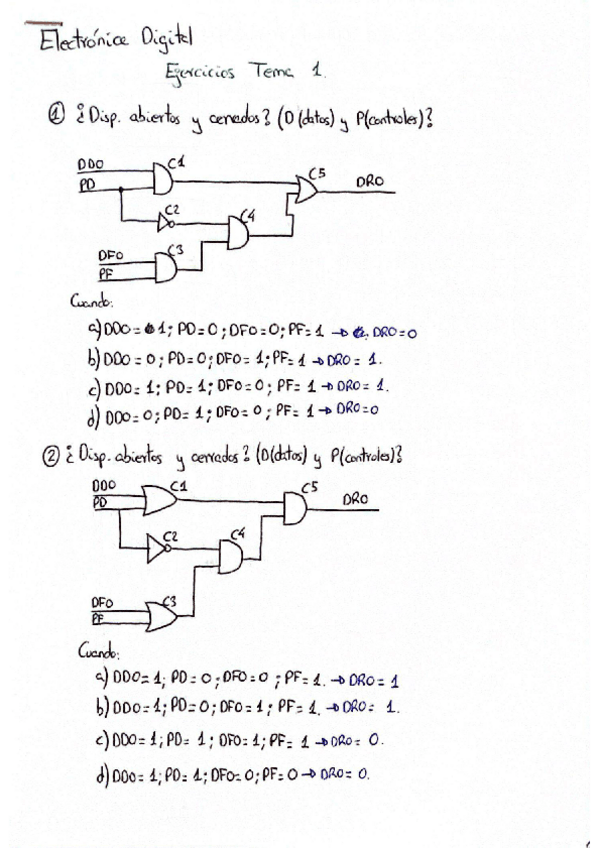 Electrónica Digital
Ejercicios Tema 1.
① ¿Disp. abiertos y cerrados? (D(datos) y P(controles)?
DDO
C1
C5
DRO
PD
C2
C4
DFO
C3
PF
Cuando:
a) DDO = 1; PD = 0; DFO = 0; PF = 1 → DRO = 0
b) DDO = 0; PD = 0; DFO = 1; PF = 1 → DRO = 1.
c) DDO = 1; PD = 1; DFO = 0; PF = 1 → DRO = 1.
d) DDO = 0; PD = 1; DFO = 0; PF = 1 → DRO = 0
② ¿Disp. abiertos y cerrados? (D(datos) y P(controles)?
DDO
C1
C5
DRO
PD
C2
C4
DFO
C3
PF
Cuando:
a) DDO = 1; PD = 0; DFO = 0; PF = 1. → DRO = 1
b) DDO = 1; PD = 0; DFO = 1; PF = 1. → DRO = 1.
c) DDO = 1; PD = 1; DFO = 1; PF = 1 → DRO = 0.
d) DDO = 1; PD = 1; DFO = 0; PF = 0 → DRO = 0.